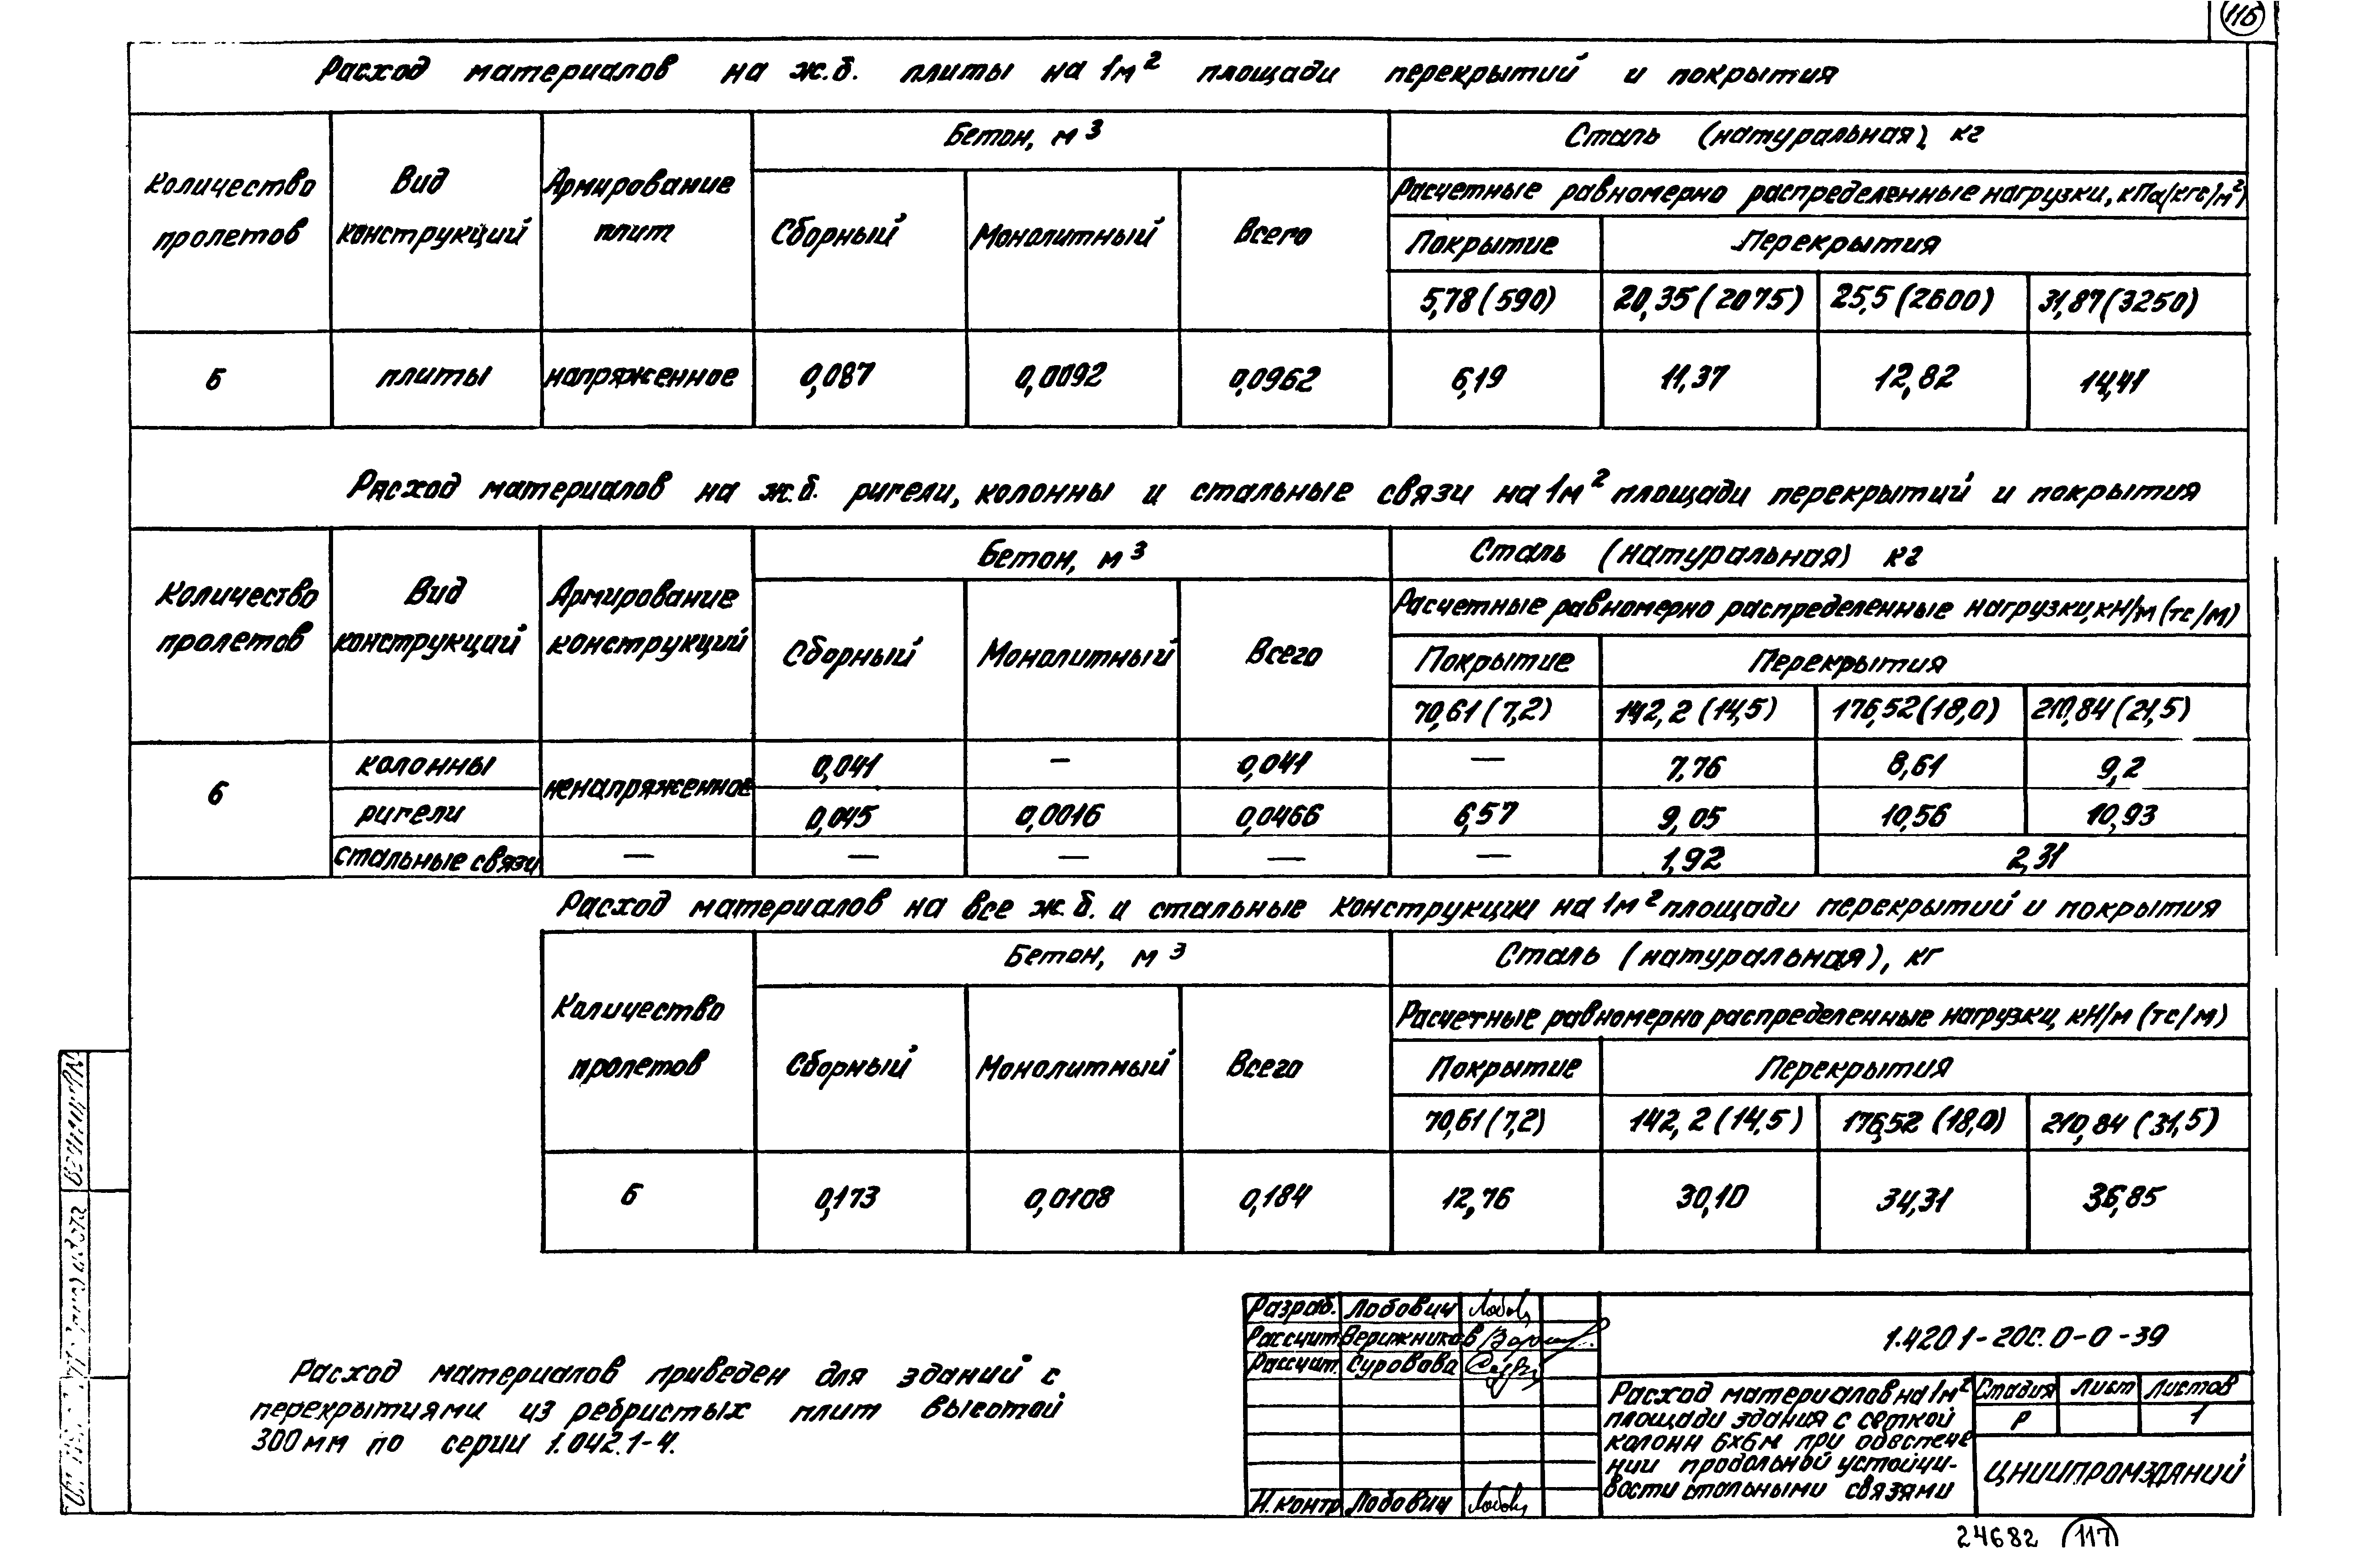 116
Расход материалов на ж.б. плиты на 1м² площади перекрытий и покрытия
Количество пролетов
Вид конструкций
Армирование плит
Бетон, м³
Сталь (натуральная), кг
Расчетные равномерно распределенные нагрузки, кПа(кгс/м²)
Сборный
Монолитный
Всего
Покрытие
Перекрытия
5,78 (590)
20,35 (2075)
25,5 (2600)
31,87 (3250)
6
плиты
напряженное
0,087
0,0092
0,0962
6,19
11,37
12,82
14,41
Расход материалов на ж.б. ригели, колонны и стальные связи на 1м² площади перекрытий и покрытия
Количество пролетов
Вид конструкций
Армирование конструкций
Бетон, м³
Сталь (натуральная) кг
Расчетные равномерно распределенные нагрузки, кН/м (тс/м)
Сборный
Монолитный
Всего
Покрытие
Перекрытия
70,61 (7,2)
142,2 (14,5)
176,52 (18,0)
210,84 (21,5)
6
колонны
ненапряженное
0,041
—
0,041
—
7,76
8,61
9,2
ригели
0,045
0,0016
0,0466
6,57
9,05
10,56
10,93
стальные связи
—
—
—
—
—
1,92
2,31
Расход материалов на все ж.б. и стальные конструкции на 1м² площади перекрытий и покрытия
Количество пролетов
Бетон, м³
Сталь (натуральная), кг
Расчетные равномерно распределенные нагрузки, кН/м (тс/м)
Сборный
Монолитный
Всего
Покрытие
Перекрытия
70,61 (7,2)
142,2 (14,5)
176,52 (18,0)
210,84 (31,5)
6
0,173
0,0108
0,184
12,76
30,10
34,31
36,85
Расход материалов приведен для зданий с
перекрытиями из ребристых плит высотой
300мм по серии 1.042.1-4.
Разраб. Лобович
Рассчит. Верижников
Рассчит. Суровова
Н.контр Лобович
1.420 1-20С.0-0-39
Расход материалов на 1м²
площади здания с сеткой
колонн 6х6м при обеспече
нии продольной устойчи-
вости стальными связями
Стадия Лист Листов
Р 1
ЦНИИПРОМЗДАНИЙ
24682 117